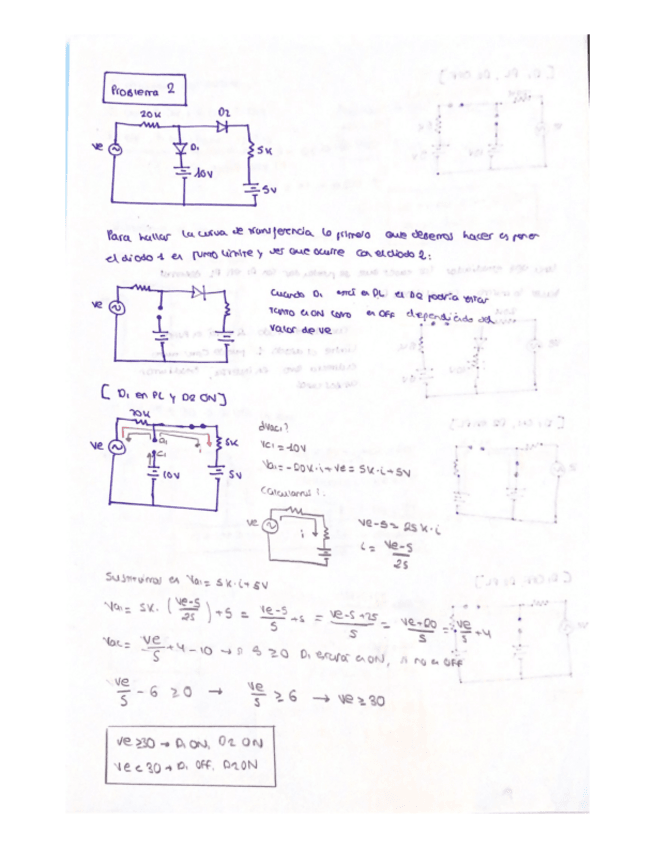 Problema 2
20K
D2
Ve
D1
10V
5K
5V
Para hallar la curva de transferencia lo primero que debemos hacer es poner
el diodo 1 en punto límite y ver que ocurre con el diodo 2:
Ve
Cuando D1 está en PL el D2 podría estar
tanto en ON como en OFF dependiendo del
valor de ve
[ D1 en PL y D2 ON ]
20K
Ve
a1
c1
10V
i
5K
5V
dVac?
Vc1 = -10V
Va1 = -20K·i + ve = 5K·i + 5V
Calculamos i:
ve
i
ve-5 = 25K·i
i = ve-5 / 25
Sustituimos en Va1 = 5K·i + 5V
Va1 = 5K · (ve-5 / 25) + 5 = ve-5 / 5 + 5 = ve-5+25 / 5 = ve+20 / 5 = ve / 5 + 4
Vac = ve / 5 + 4 - 10 → D ≥ 0 D1 estará en ON, si no en OFF
ve / 5 - 6 ≥ 0 → ve / 5 ≥ 6 → ve ≥ 30
ve ≥ 30 → D1 ON, D2 ON
ve < 30 → D1 OFF, D2 ON